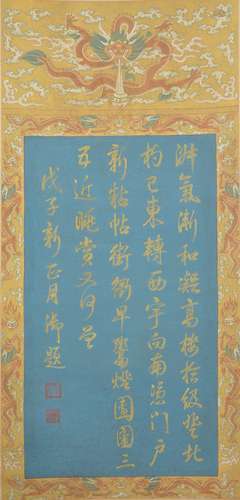 淑氣漸和凝高樓拾級登北
杓已東轉西宇向南憑門戶
新粘帖街衢早燈團圓三
五近眺賞又何曾
戊子新正月御題